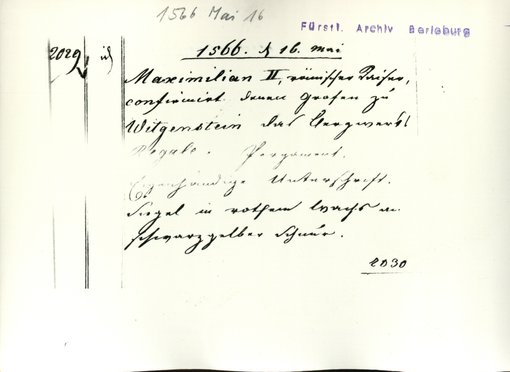 1566 Mai 16
Fürstl. Archiv Berleburg
2029,
1566. d 16. Mai
Maximilian II, römischer Kaiser,
confirmirt denen Grafen zu
Witgenstein das Bergwerks
Regale. Pergament.
Eigenhändige Unterschrift.
Siegel in rothem Wachs an
schwarzgelber Schnur.
2030